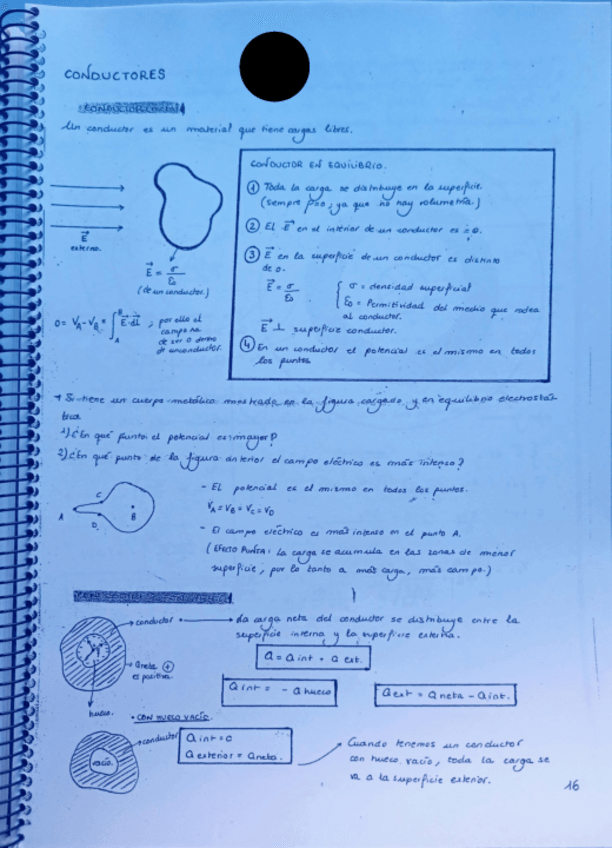 CONDUCTORES
Un conductor es un material que tiene cargas libres.
E externo.
E = σ/ε0
(de un conductor.)
0 = VA - VB = ∫ E·dl ; por ello el
campo ha
de ser 0 dentro
de un conductor.
CONDUCTOR EN EQUILIBRIO.
① Toda la carga se distribuye en la superficie.
(siempre ρ=0, ya que no hay volumetría.)
② El E en el interior de un conductor es = 0.
③ E en la superficie de un conductor es distinto
de 0.
E = σ/ε0 { σ = densidad superficial
ε0 = Permitividad del medio que rodea
al conductor.
E ⊥ superficie conductor.
④ En un conductor el potencial es el mismo en todos
los puntos
Si tiene un cuerpo metálico mostrado en la figura cargado y en equilibrio electrostá-
tico
1) ¿En qué punto el potencial es mayor?
2) ¿En qué punto de la figura anterior el campo eléctrico es más intenso?
A
C
D
B
- El potencial es el mismo en todos los puntos.
VA = VB = VC = VD
- El campo eléctrico es más intenso en el punto A.
(EFECTO PUNTA: La carga se acumula en las zonas de menor
superficie, por lo tanto a más carga, más campo.)
conductor
La carga neta del conductor se distribuye entre la
superficie interna y la superficie externa.
Qneta ⊕
es positiva.
hueco.
Q = Q int + Q ext.
Q int = - Q hueco
Q ext = Q neta - Q int.
• CON HUECO VACÍO.
conductor
vacío.
Q int = 0
Q exterior = Q neta.
Cuando tenemos un conductor
con hueco vacío, toda la carga se
va a la superficie exterior.
16